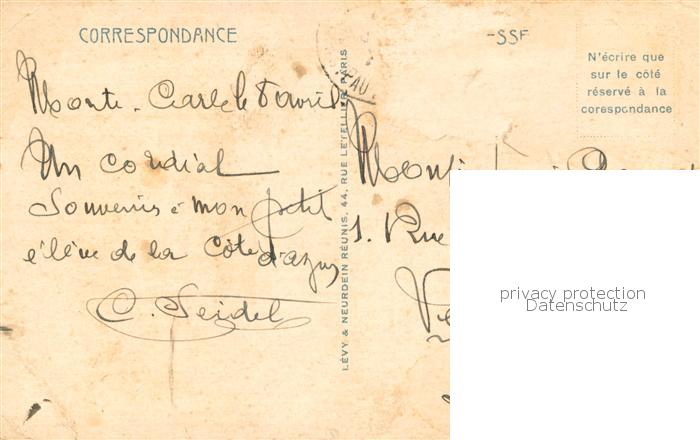 CORRESPONDANCE
-SSF
N'écrire que
sur le côté
réservé à la
corespondance
Monte-Carlo le
Un cordial
Souvenir à mon petit
élève de la Côte d'azur
C. Seidel
LÉVY & NEURDEIN RÉUNIS, 44, RUE LETELLIER, PARIS
Monsieur
1. Rue
privacy protection
Datenschutz